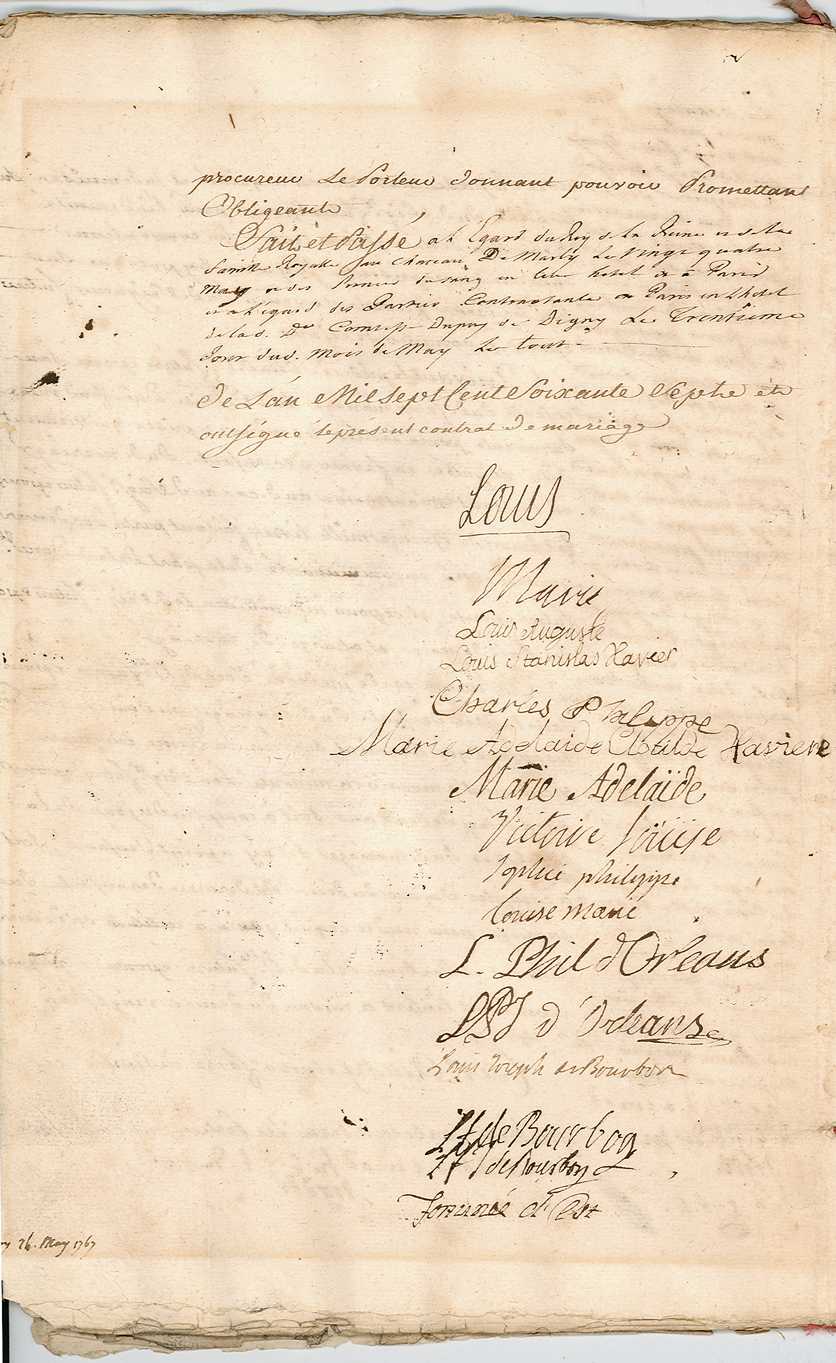 procureur Le Porteur donnant pouvoir Promettant
Obligeante
Fait et Passé a L'Egard du Roy de la Reine et de la
famille Royalle au chateau De Marly Le Vingt quatre
May et des Princes du sang en leur hotel a Paris
et a L'égard des Parties Contractante a Paris en L'hotel
de lad. De. Comtesse Dupuy de Digny Le Trentieme
Jour dud. mois de May Le tout
De L'an Mil sept Cent Soixante Septe et
ont signé le présent contrat de mariage
Louis
Marie
Louis Auguste
Louis Stanislas Xavier
Charles Philippe
Marie Adelaide Clotilde Xaviere
Marie Adelaïde
Victoire Loüise
Sophie philippe
Louise marie
L. Phil d'Orleans
LPJ d'Orleans
Louis Joseph de Bourbon
de Bourbon
de Bourbon
Fortunée d'Est
26. May 1767